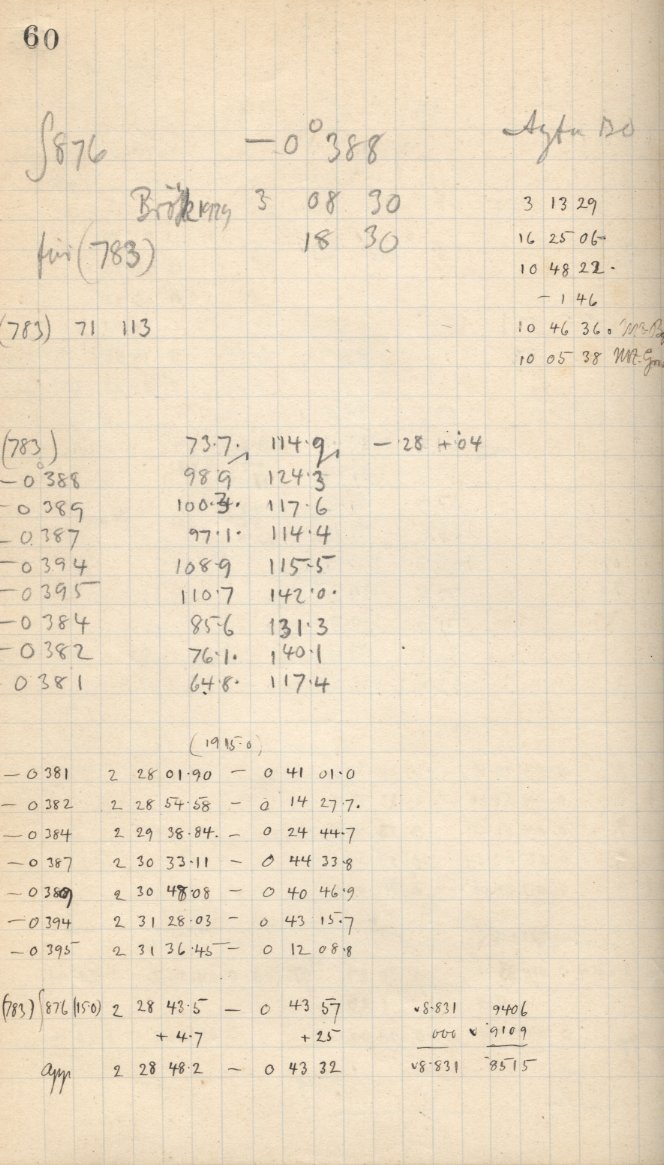 60
∫876 -0° 388
Agfa
1929 3 08 30
3 13 29
für (783) 18 30
16 25 06
10 48 22.
- 1 46
(783) 71 113 10 46 36.
10 05 38
(783) 73.7. 114.9 - .28 + .04
-0° 388 98.9 124.3
-0 389 100.3. 117.6
-0 387 97.1. 114.4
-0 394 108.9 115.5
-0 395 110.7 142.0.
-0 384 85.6 131.3
-0 382 76.1. 140.1
0 381 64.8. 117.4
(1915.0)
-0 381 2 28 01.90 - 0 41 01.0
-0 382 2 28 54.58 - 0 14 27.7.
-0 384 2 29 38.84. - 0 24 44.7
-0 387 2 30 33.11 - 0 44 33.8
-0 389 2 30 48.08 - 0 40 46.9
-0 394 2 31 28.03 - 0 43 15.7
-0 395 2 31 36.45 - 0 12 08.8
(783) ∫876 (15.0) 2 28 43.5 - 0 43 57 8.831 9406
+ 4.7 + 25 000 9109
App 2 28 48.2 - 0 43 32 8.831 8515